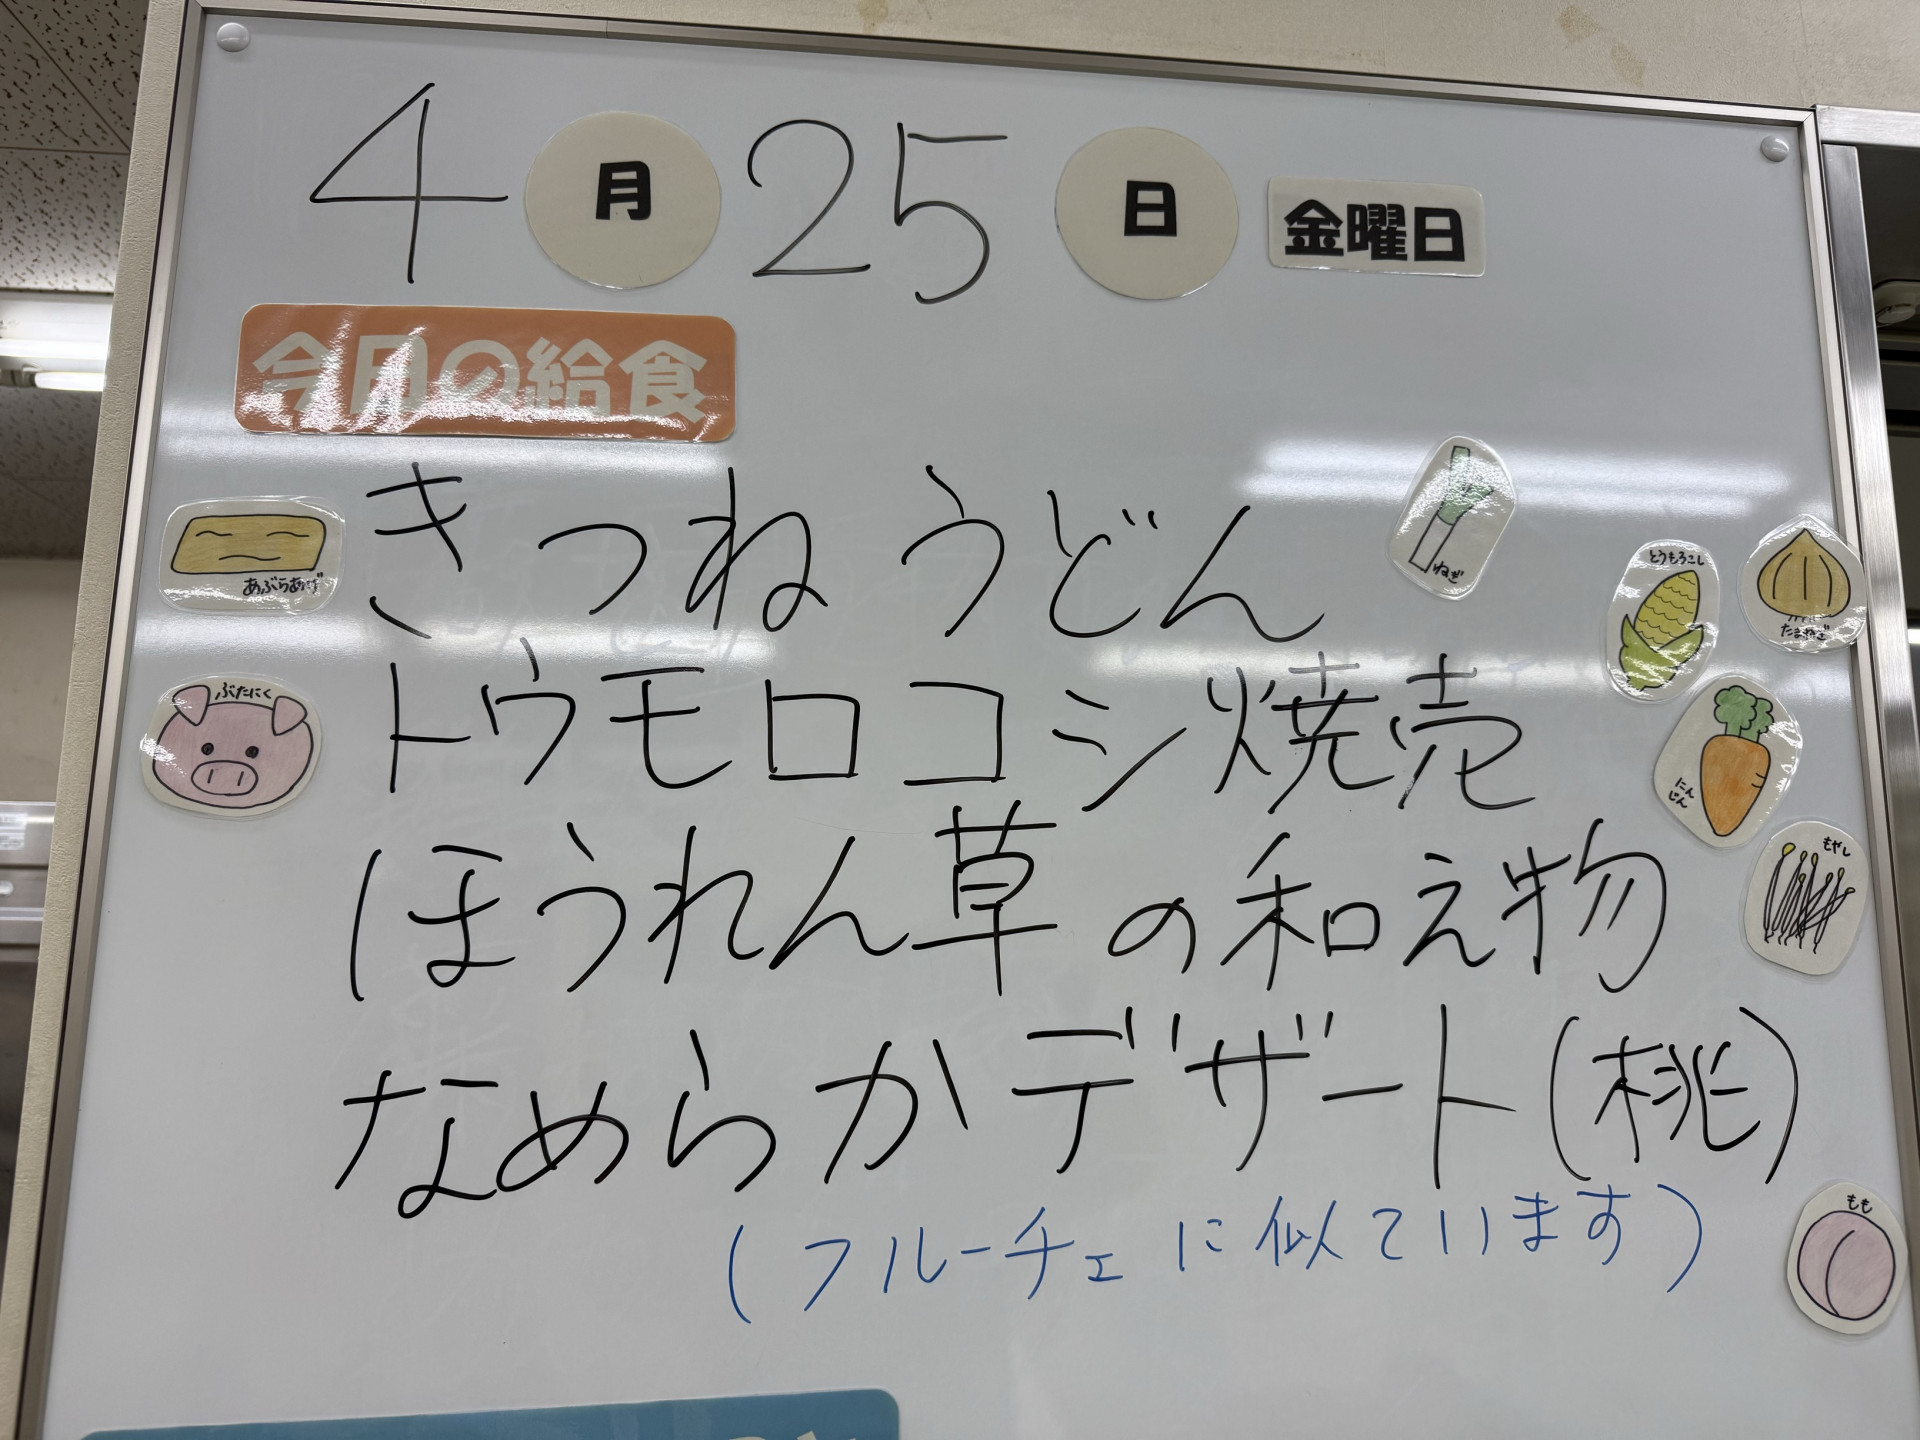 4月25日 金曜日
今日の給食
きつねうどん
あぶらあげ
ねぎ
とうもろこし
たまねぎ
トウモロコシ焼売
ぶたにく
にんじん
ほうれん草の和え物
もやし
なめらかデザート(桃)
(フルーチェに似ています)
もも